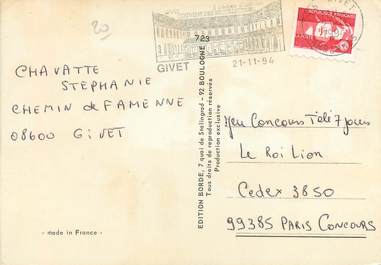 20
723
GIVET
21-11-94
RÉPUBLIQUE FRANÇAISE
CHAVATTE
STEPHANIE
CHEMIN de FAMENNE
08600 GIVET
EDITION BORDE, 7 quai de Stalingrad - 92 BOULOGNE
Tous droits de reproduction réservés
Production exclusive
Jeu Concours Télé 7 jours
Le Roi Lion
Cedex 3850
99385 PARIS CONCOURS
- made in France -